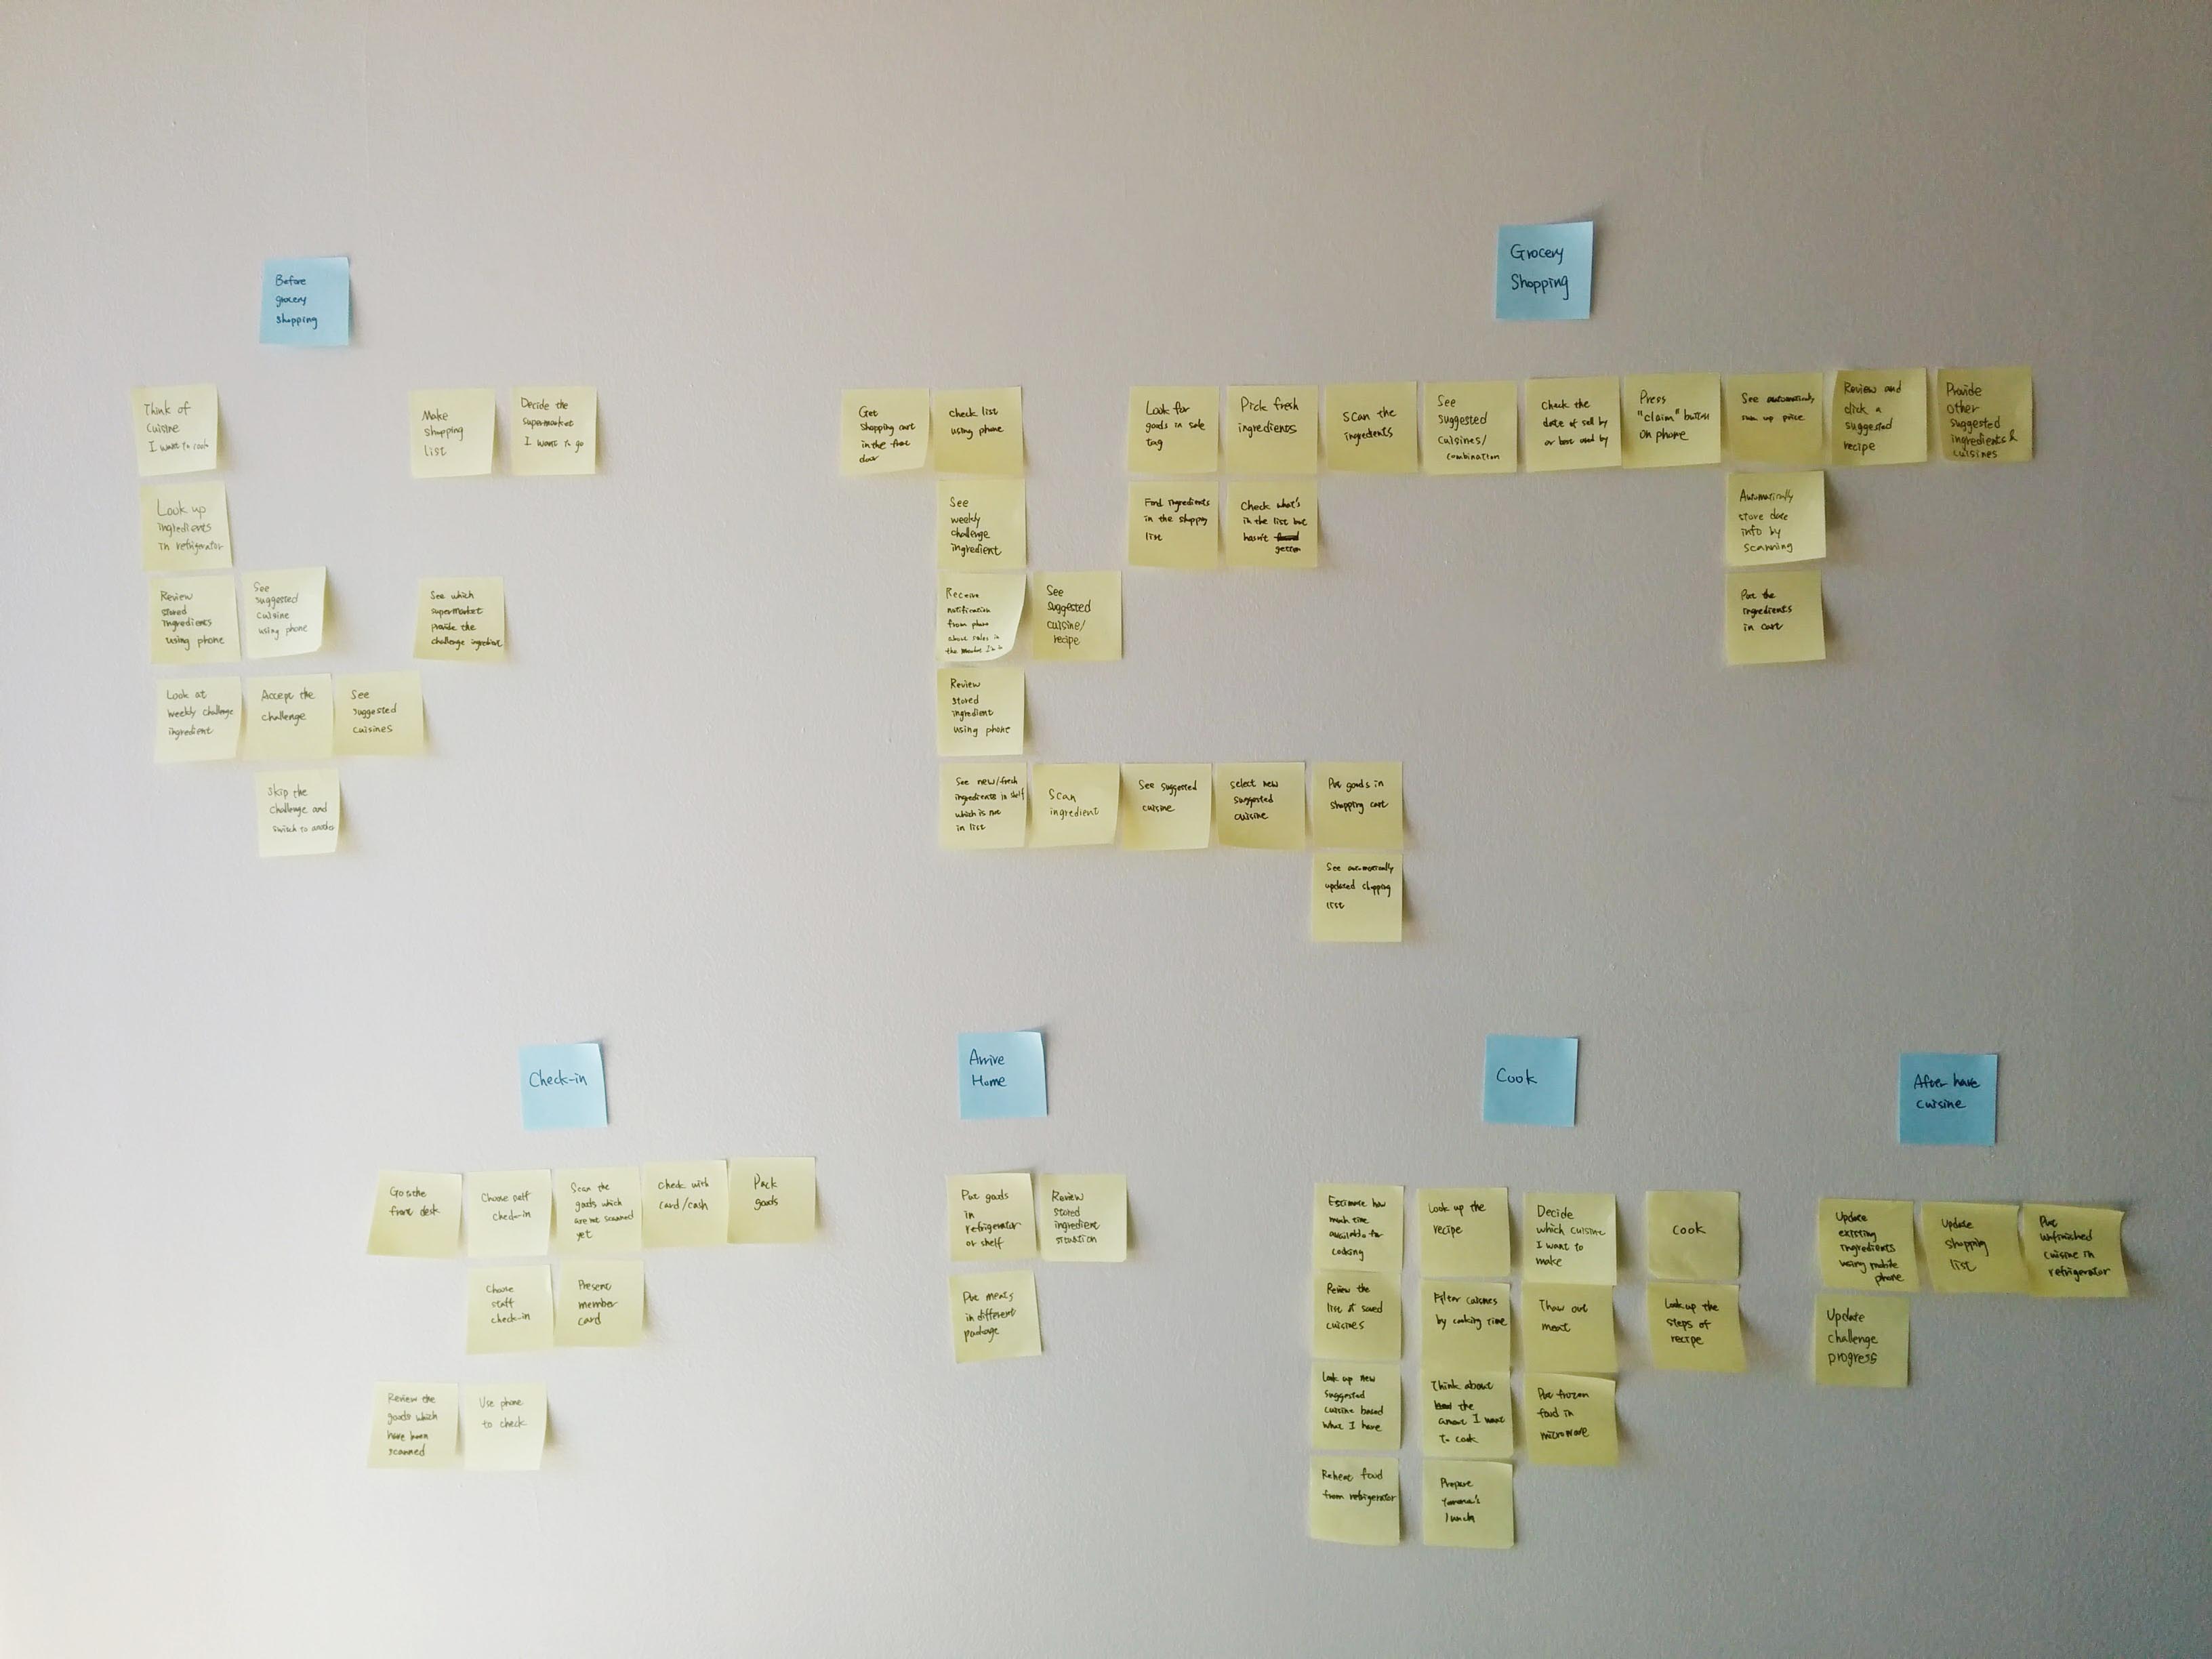 Before
grocery
shopping
Think of
cuisine
I want to cook
Make
shopping
list
Decide the
supermarket
I want to go
Look up
ingredients
in refrigerator
Review
stored
ingredients
using phone
See
suggested
cuisine
using phone
See which
supermarket
provide the
challenge ingredient
Look at
weekly challenge
ingredient
Accept the
challenge
See
suggested
cuisines
Skip the
challenge and
switch to another
Grocery
Shopping
Get
shopping cart
in the front
door
check list
using phone
Look for
goods in sale
tag
Pick fresh
ingredients
Scan the
ingredients
See
suggested
cuisines/
combination
Check the
date of sell by
or best used by
Press
"claim" button
on phone
See automatically
sum up price
Review and
click a
suggested
recipe
Provide
other
suggested
ingredients &
cuisines
See
weekly
challenge
ingredient
Find ingredients
in the shopping
list
Check what's
in the list but
hasn't
gotten
Automatically
store date
info by
scanning
Receive
notification
from phone
about sales in
the market I'm in
See
suggested
cuisine/
recipe
Put the
ingredients
in cart
Review
stored
ingredient
using phone
See new/fresh
ingredients in shelf
which is not
in list
Scan
ingredient
See suggested
cuisine
select new
suggested
cuisine
Put goods in
shopping cart
See automatically
updated shopping
list
Check-in
Go to the
front desk
Choose self
check-in
Scan the
goods which
are not scanned
yet
Check with
card/cash
Pack
goods
Choose
staff
check-in
Present
member
card
Review the
goods which
have been
scanned
Use phone
to check
Arrive
Home
Put goods
in
refrigerator
or shelf
Review
stored
ingredient
situation
Put meats
in different
package
Cook
Estimate how
much time
available for
cooking
Look up the
recipe
Decide
which cuisine
I want to
make
Cook
Review the
list of saved
cuisines
Filter cuisines
by cooking time
Thaw out
meat
Look up the
steps of
recipe
Look up new
suggested
cuisine based
what I have
Think about
the
amout I want
to cook
Put frozen
food in
microwave
Reheat food
from refrigerator
Prepare
lunch
After have
cuisine
Update
existing
ingredients
using mobile
phone
Update
shopping
list
Put
unfinished
cuisine in
refrigerator
Update
challenge
progress